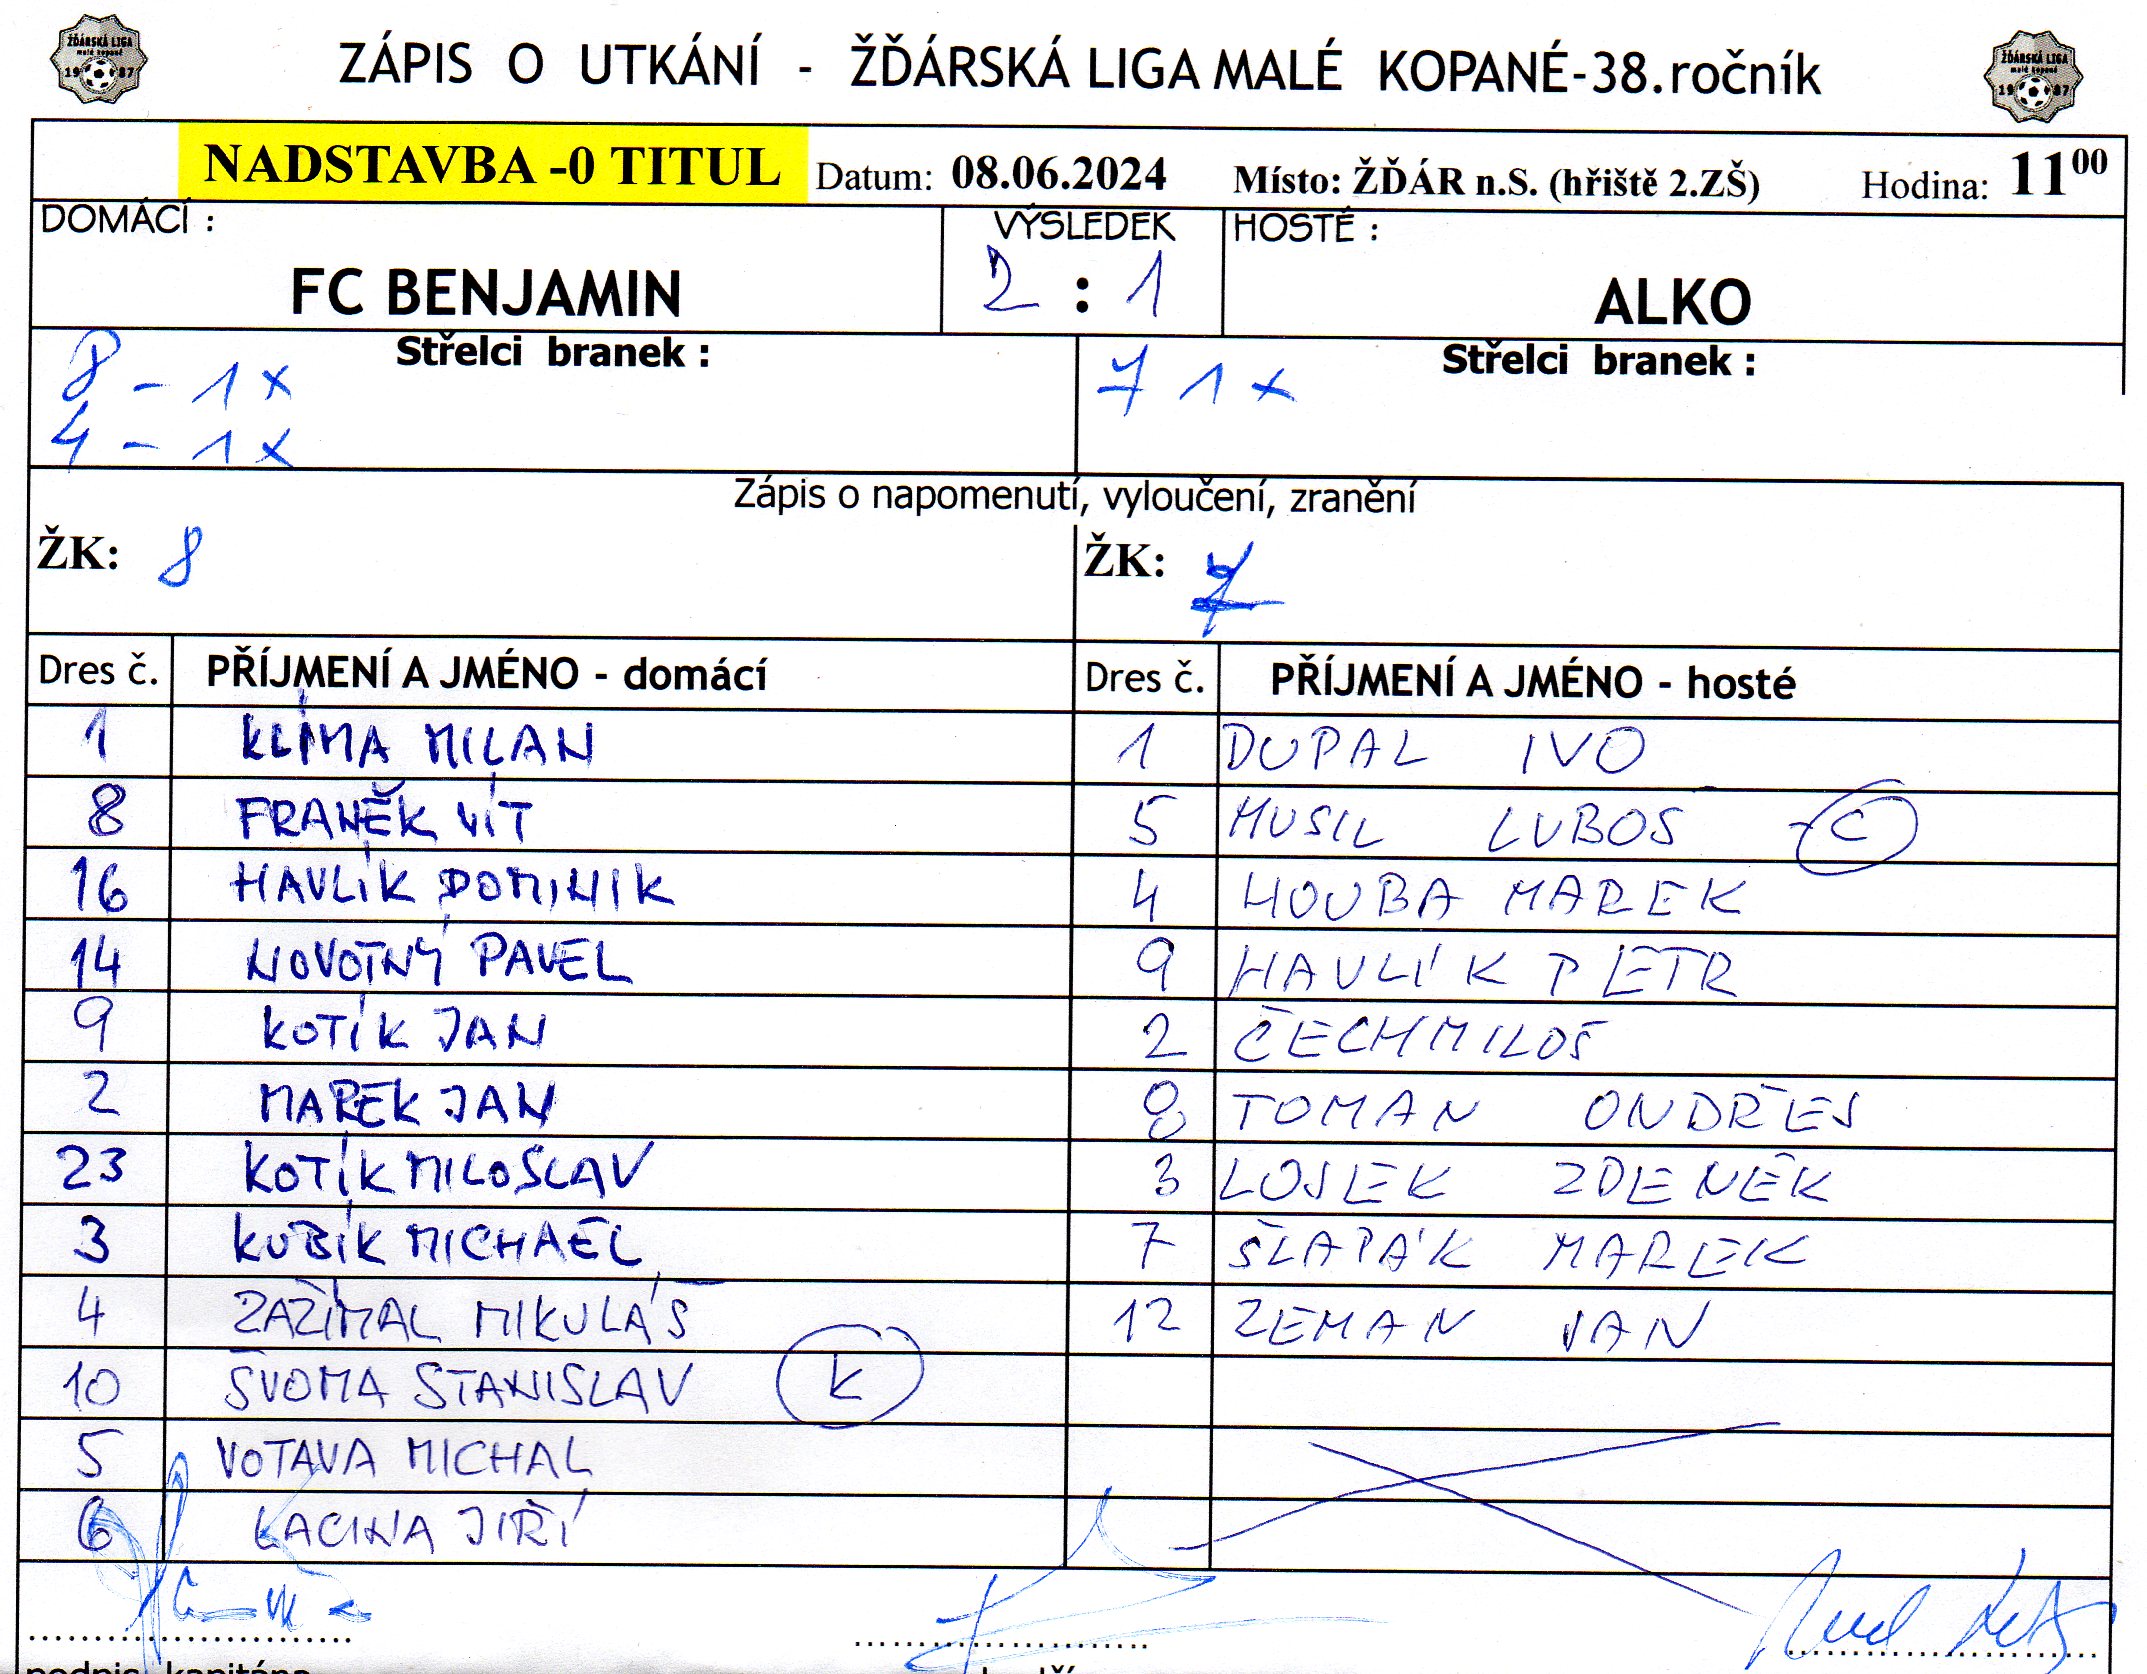 ŽĎÁRSKÁ LIGA
malé kopané
19 87
ZÁPIS O UTKÁNÍ - ŽĎÁRSKÁ LIGA MALÉ KOPANÉ-38.ročník
ŽĎÁRSKÁ LIGA
malé kopané
19 87
NADSTAVBA -0 TITUL Datum: 08.06.2024 Místo: ŽĎÁR n.S. (hřiště 2.ZŠ) Hodina: 11 00
DOMÁCÍ : VÝSLEDEK HOSTÉ :
FC BENJAMIN 2 : 1 ALKO
Střelci branek : Střelci branek :
8 - 1x 7 1x
4 - 1x
Zápis o napomenutí, vyloučení, zranění
ŽK: 8 ŽK: 7
Dres č. PŘÍJMENÍ A JMÉNO - domácí Dres č. PŘÍJMENÍ A JMÉNO - hosté
1 KLÍMA MILAN 1 DUPAL IVO
8 FRANĚK VÍT 5 MUSIL LUBOŠ - C
16 HAVLÍK DOMINIK 4 HOUBA MAREK
14 NOVOTNÝ PAVEL 9 HAVLÍK PETR
9 KOTÍK JAN 2 ČECH MILOŠ
2 MAREK JAN 8 TOMAN ONDŘEJ
23 KOTÍK MILOSLAV 3 LOSEK ZDENĚK
3 KUBÍK MICHAEL 7 ŠLAPÁK MAREK
4 ZAŽÍMAL MIKULÁŠ 12 ZEMAN JAN
10 ŠVOMA STANISLAV K
5 VOTAVA MICHAL
6 LACINA JIŘÍ
podpis kapitána